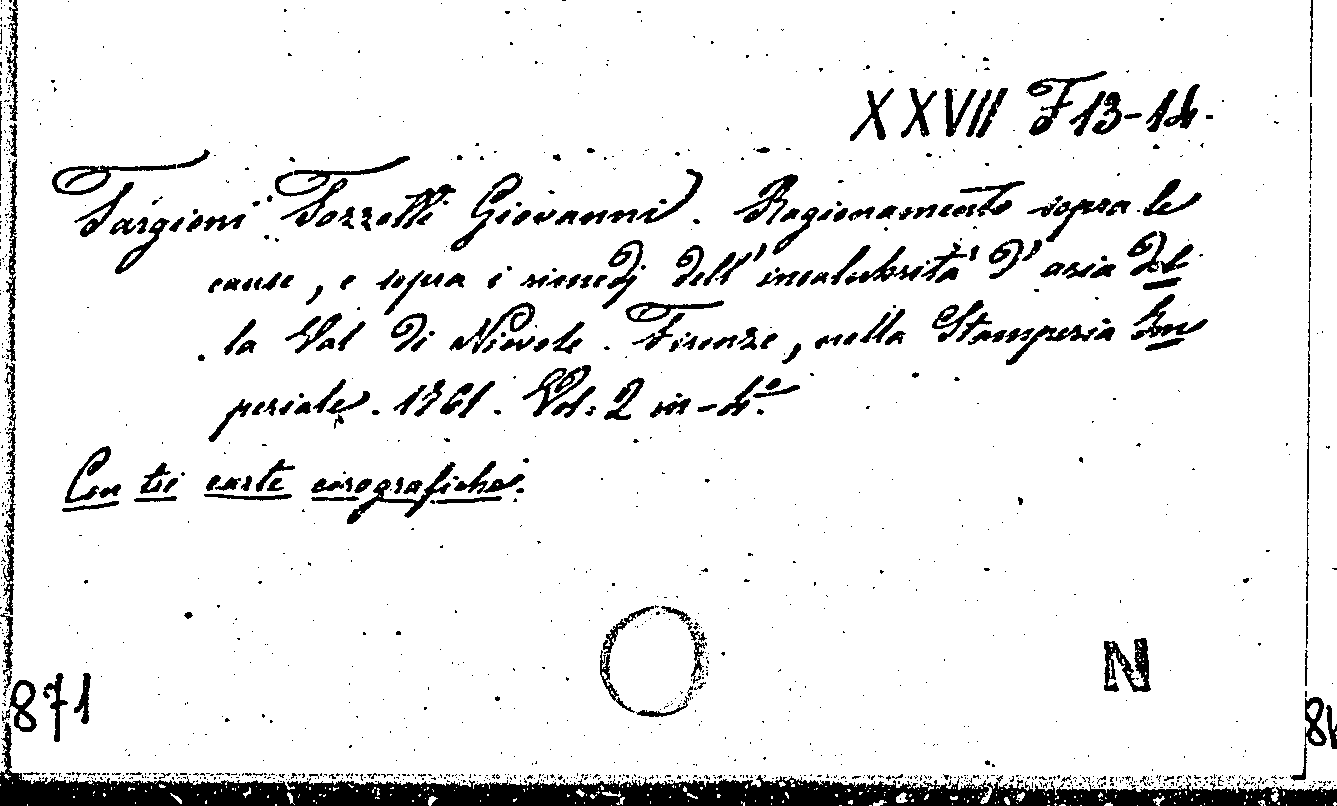 XXVII F 13-14.
Targioni Tozzetti Giovanni. Ragionamento sopra le
cause, e sopra i rimedj dell' insalubrità d' aria del
la Val di Nievole. Firenze, nella Stamperia Im
periale. 1761. Vol. 2 in-4.º
Con tre carte corografiche.
N
871